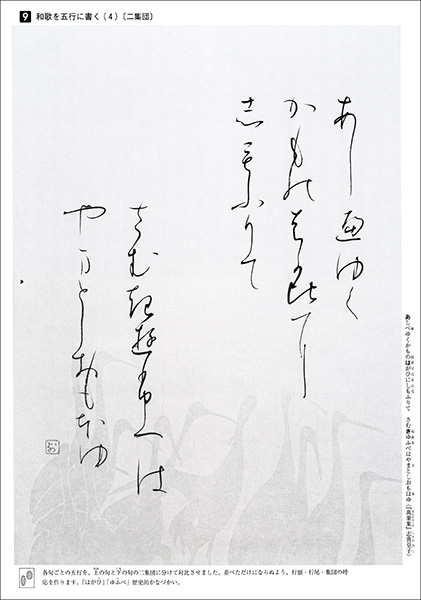 9 和歌を五行に書く(4)〔二集団〕
あし遍ゆく
かも能
志もふりて
さむ起遊
は
やまとしおもほゆ
あしべゆくかものはがひにしもふりて さむきゆふべはやまとしおもほゆ(『萬葉集』志貴皇子)
各句ごとの五行を、上の句と下の句の二集団に分けて対比させました。並べただけにならぬよう、行頭・行尾・集団の呼
応を作ります。「はがひ」「ゆふべ」歴史的かなづかい。